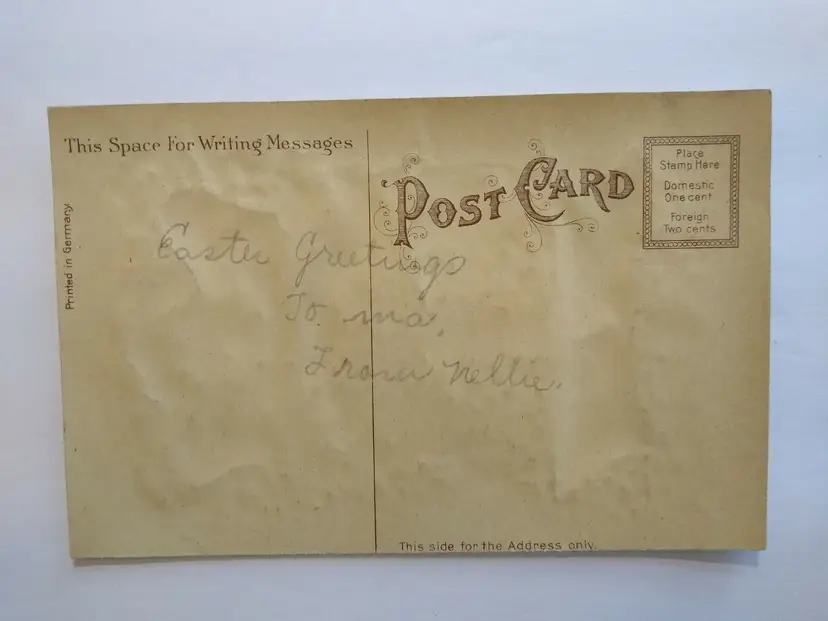 This Space For Writing Messages
POST CARD
Place
Stamp Here
Domestic
One cent
Foreign
Two cents
Printed in Germany.
Easter Greetings
To ma,
From Nellie.
This side for the Address only.